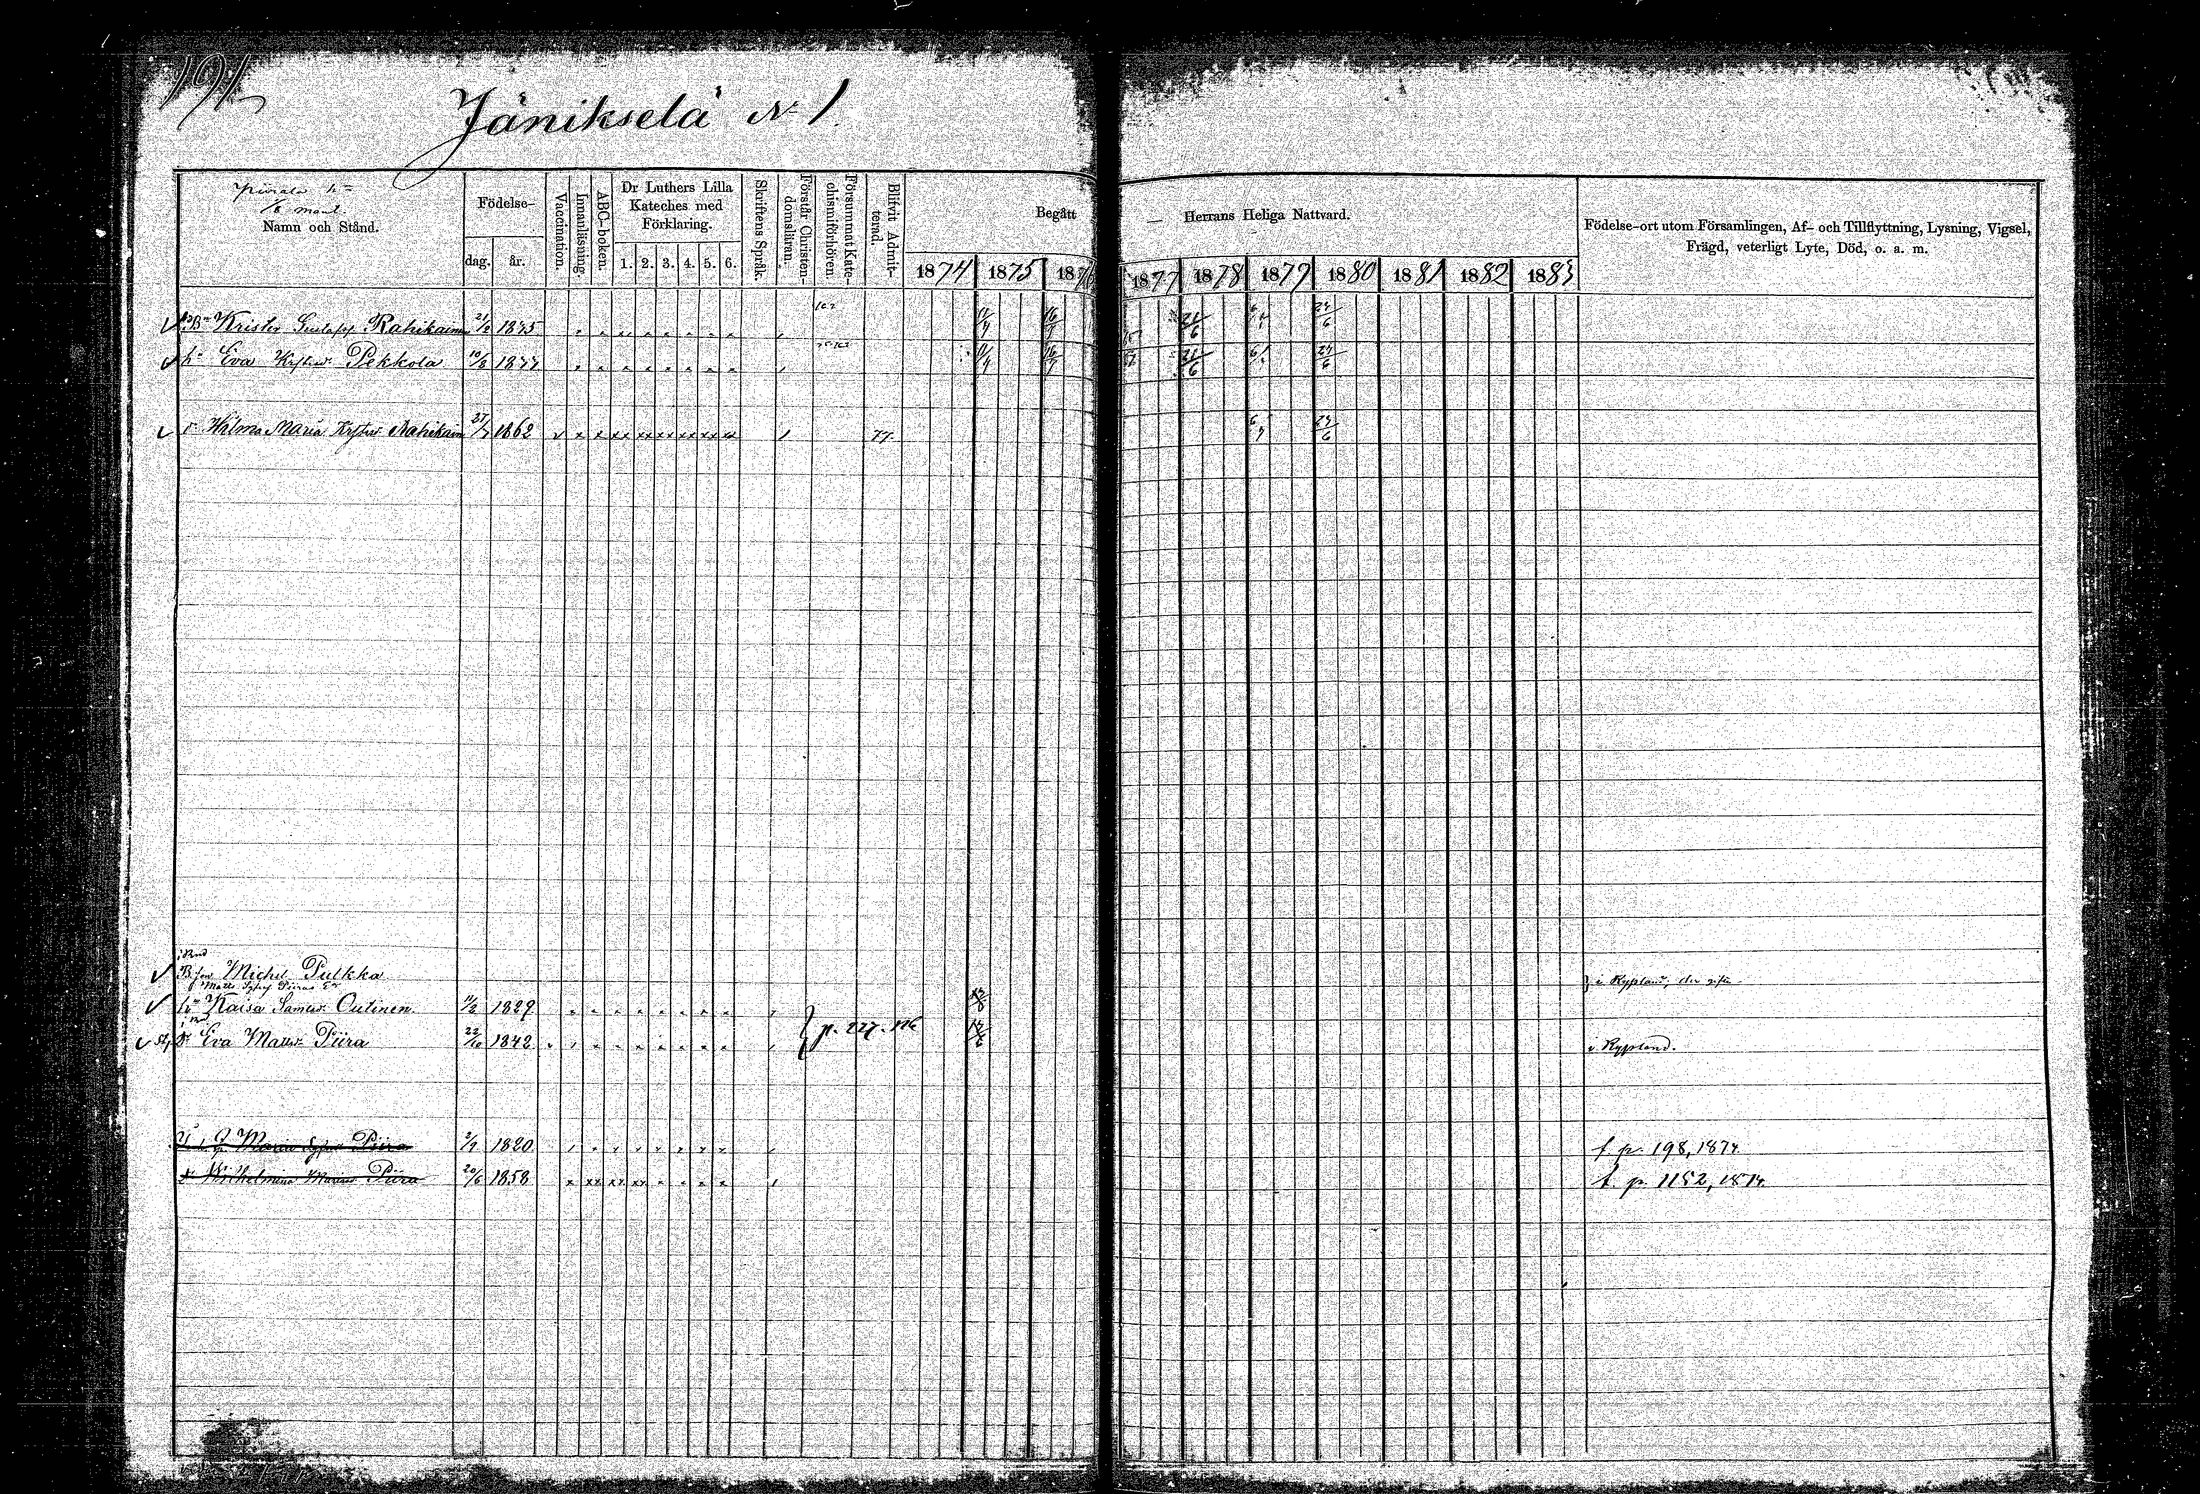 191
Jänikselä N 1.
1/8 mant
Namn och Stånd.
Födelse-
dag.
år.
Vaccination.
Innanläsning.
ABC-boken.
Dr Luthers Lilla Kateches med Förklaring.
1. 2. 3. 4. 5. 6.
Skriftens Språk.
Förstår Christen-domsläran.
Försummat Kate-chismiförhören.
Blifvit Admit-terad.
Begått — Herrans Heliga Nattvard.
1874 1875 1876 1877 1878 1879 1880 1881 1882 1883
Födelse-ort utom Församlingen, Af- och Tillflyttning, Lysning, Vigsel,
Frägd, veterligt Lyte, Död, o. a. m.
Krister Rahikainen 21/2 1845 11/4 16/7 21/6 24/6
h Eva Pekkola 10/8 1844 11/4 16/7 21/6 24/6
Hilma Maria Rahikain 27/7 1862 77. 24/6
Michel Pulkka i Ryssland,
Kaisa Outinen. 11/2 1829
Eva Piira 22/10 1842 p. 227. i Ryssland.
Maria Piira 2/9 1820 f. p. 198, 1874
Wilhelmina Piira 20/6 1858 f. p. 1152, 1874